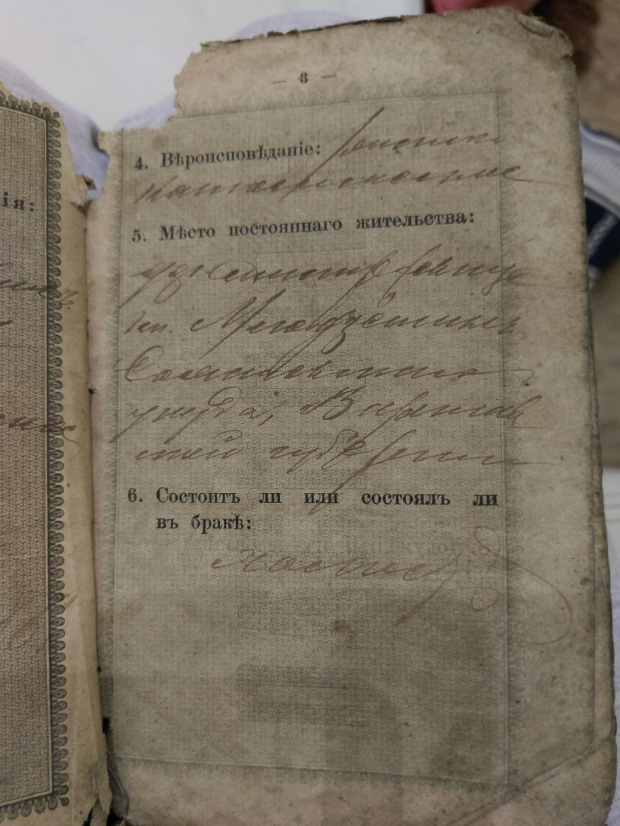 — 3 —
4. Вѣроисповѣданіе: римско
католическаго
5. Мѣсто постояннаго жительства:
гм. Млодзѣшинъ
Сохачевскаго
уѣзда, Варшав
ской губерніи
6. Состоитъ ли или состоялъ ли
въ бракѣ:
холостъ
ія: